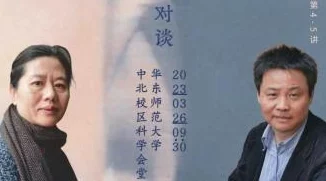 第4-5讲
对谈
20
23
03
26
09:
30
华东师范大学
中北校区科学会堂